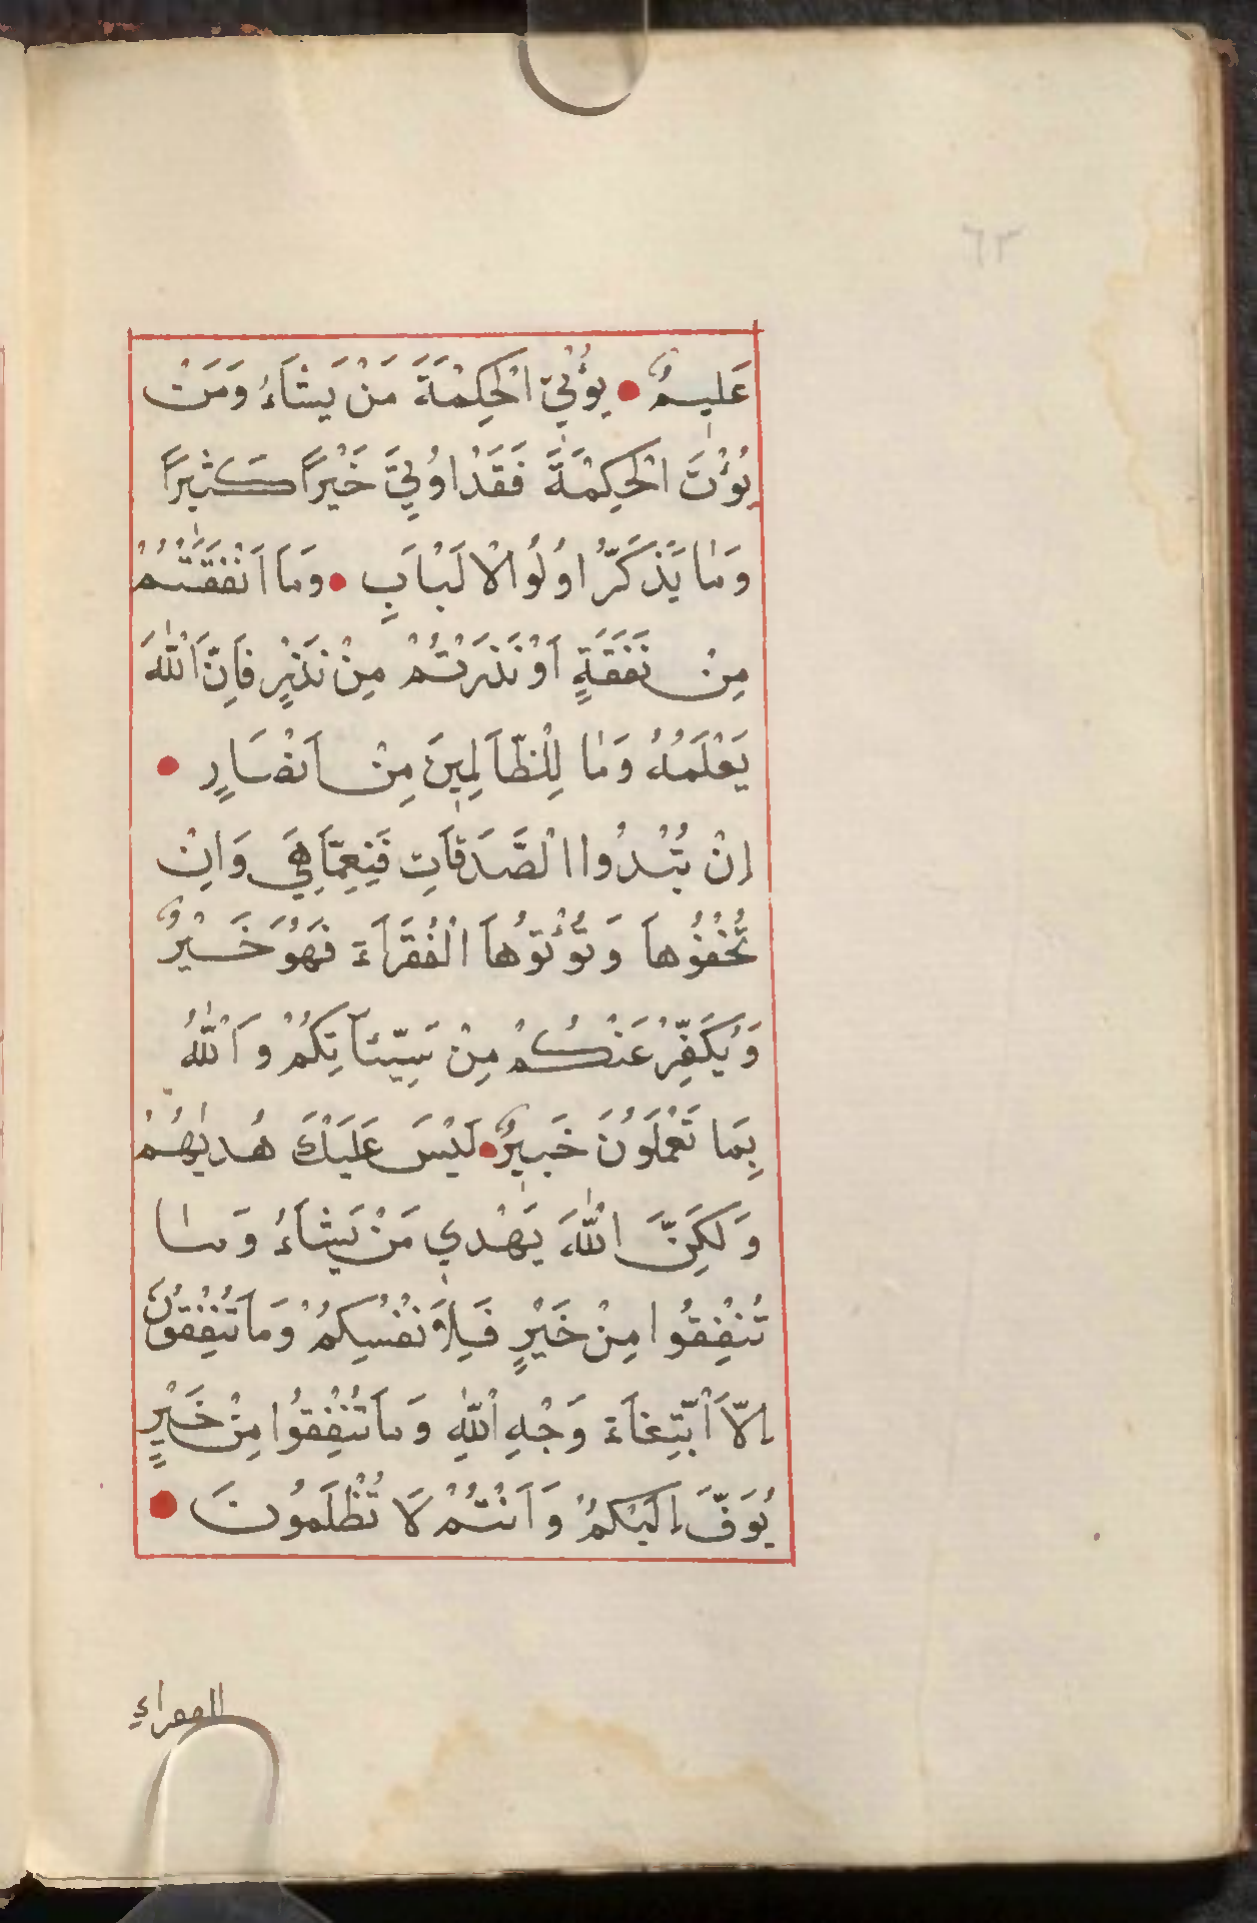 ٦٣
عَلِيمٌ • يُؤْتِي الْحِكْمَةَ مَنْ يَشَاءُ وَمَنْ
يُؤْتَ الْحِكْمَةَ فَقَدْ اُوتِيَ خَيْرًا كَثِيرًا
وَمَا يَذَّكَّرُ اُولُوا الْاَلْبَابِ • وَمَا اَنْفَقْتُمْ
مِنْ نَفَقَةٍ اَوْ نَذَرْتُمْ مِنْ نَذْرٍ فَاِنَّ اللّٰهَ
يَعْلَمُهُ وَمَا لِلظَّالِمِينَ مِنْ اَنْصَارٍ •
اِنْ تُبْدُوا الصَّدَقَاتِ فَنِعِمَّا هِيَ وَاِنْ
تُخْفُوهَا وَتُؤْتُوهَا الْفُقَرَاءَ فَهُوَ خَيْرٌ
وَيُكَفِّرْ عَنْكُمْ مِنْ سَيِّئَاتِكُمْ وَاللّٰهُ
بِمَا تَعْمَلُونَ خَبِيرٌ • لَيْسَ عَلَيْكَ هُدٰيهُمْ
وَلَكِنَّ اللّٰهَ يَهْدِي مَنْ يَشَاءُ وَمَا
تُنْفِقُوا مِنْ خَيْرٍ فَلِاَنْفُسِكُمْ وَمَا تُنْفِقُونَ
اِلَّا ابْتِغَاءَ وَجْهِ اللّٰهِ وَمَا تُنْفِقُوا مِنْ خَيْرٍ
يُوَفَّ اِلَيْكُمْ وَاَنْتُمْ لَا تُظْلَمُونَ •
للفقراءِ